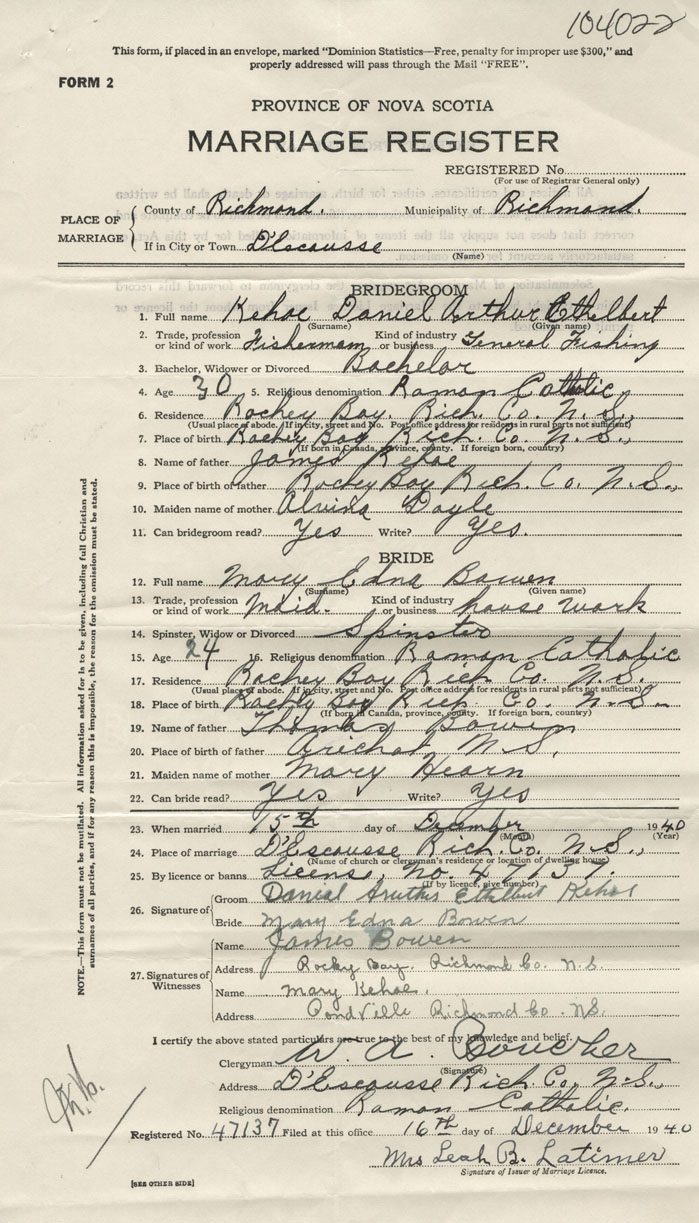 104022
This form, if placed in an envelope, marked "Dominion Statistics—Free, penalty for improper use $300," and
properly addressed will pass through the Mail "FREE".
FORM 2
PROVINCE OF NOVA SCOTIA
MARRIAGE REGISTER
REGISTERED No.
(For use of Registrar General only)
PLACE OF MARRIAGE
County of Richmond. Municipality of Richmond.
If in City or Town D'Escousse
(Name)
BRIDEGROOM
1. Full name Kehoe Daniel Arthur Ethelbert
(Surname) (Given name)
2. Trade, profession or kind of work Fisherman Kind of industry or business General Fishing
3. Bachelor, Widower or Divorced Bachelor
4. Age 30 5. Religious denomination Roman Catholic
6. Residence Rockey Bay Rich. Co. N.S.,
(Usual place of abode. If in city, street and No. Post office address for residents in rural parts not sufficient)
7. Place of birth Rockey Bay Rich. Co. N.S.,
(If born in Canada, province, county. If foreign born, country)
8. Name of father James Kehoe
9. Place of birth of father Rockey Bay Rich Co. N.S.,
10. Maiden name of mother Alvina Doyle
11. Can bridegroom read? Yes Write? Yes.
BRIDE
12. Full name Mary Edna Bowen
(Surname) (Given name)
13. Trade, profession or kind of work Maid. Kind of industry or business house work
14. Spinster, Widow or Divorced Spinster
15. Age 24 16. Religious denomination Roman Catholic
17. Residence Rockey Bay Rich Co. N.S.
(Usual place of abode. If in city, street and No. Post office address for residents in rural parts not sufficient)
18. Place of birth Rockey Bay Rich Co. N.S.
(If born in Canada, province, county. If foreign born, country)
19. Name of father Thomas Bowen
20. Place of birth of father Arichat N.S,
21. Maiden name of mother Mary Hearn
22. Can bride read? Yes Write? Yes
23. When married 15th day of December 1940
(Month) (Year)
24. Place of marriage D'Escousse Rich. Co. N.S.,
(Name of church or clergyman's residence or location of dwelling house)
25. By licence or banns License, No. 47137.
(If by licence, give number)
26. Signature of
Groom Daniel Aruther Ethelbert Kehoe
Bride Mary Edna Bowen
27. Signatures of Witnesses
Name James Bowen
Address Rocky Bay. Richmond Co. N.S.
Name Mary Kehoe.
Address Pondville Richmond Co. NS.
I certify the above stated particulars are true to the best of my knowledge and belief.
Clergyman W. A. Boucher
(Signature)
Address D'Escousse Rich. Co. N.S.,
Religious denomination Roman Catholic.
Registered No. 47137 Filed at this office 16th day of December 1940
Mrs Leah B. Latimer
Signature of Issuer of Marriage Licence.
[SEE OTHER SIDE]
NOTE.—This form must not be mutilated. All information asked for is to be given, including full Christian and
surnames of all parties, and if for any reason this is impossible, the reason for the omission must be stated.